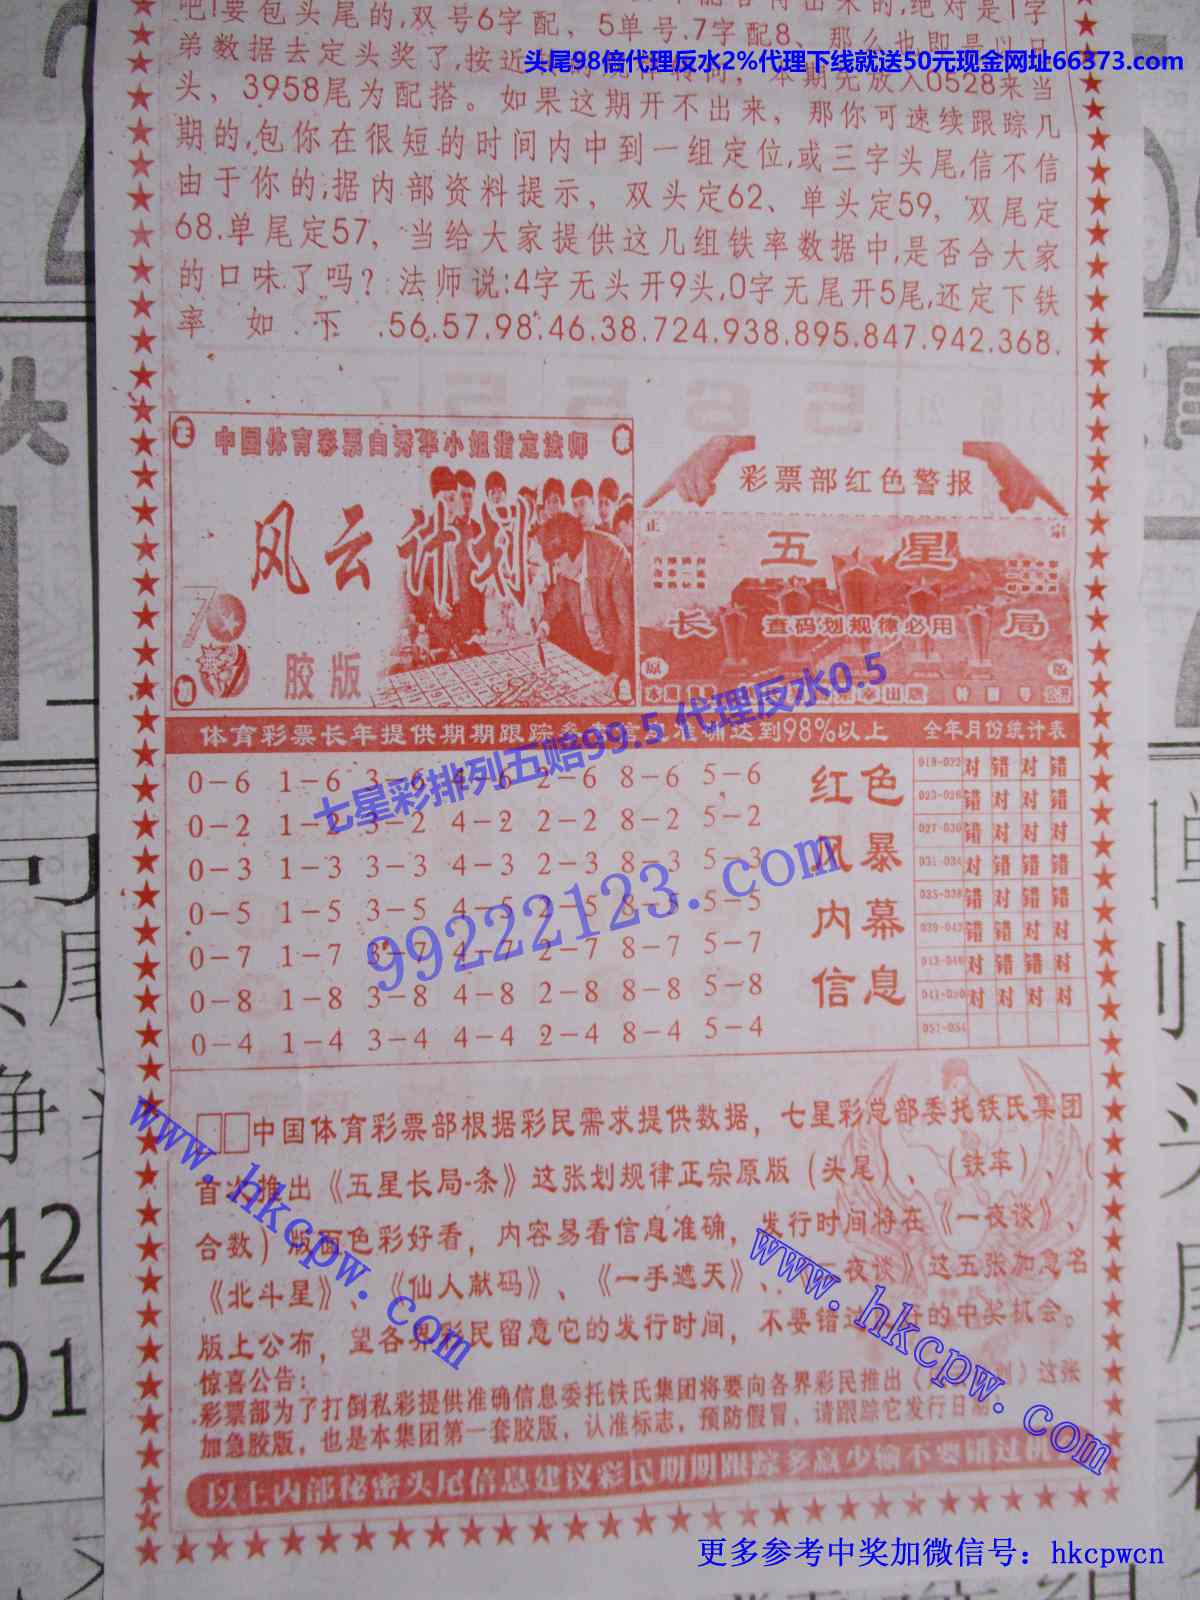 吧!要包头尾的,双号6字配,5单号.7字配8、那么也即是以
头尾98倍代理反水2%代理下线就送50元现金网址66373.com
弟数据去定头奖了,按近
头,3958尾为配搭。如果这期开不出来,那你可速续跟踪几
本期先放入0528来当
期的,包你在很短的时间内中到一组定位,或三字头尾,信不信
由于你的;据内部资料提示,双头定62、单头定59,双尾定
68.单尾定57,当给大家提供这几组铁率数据中,是否合大家
的口味了吗?法师说:4字无头开9头,0字无尾开5尾,还定下铁
率如下.56.57.98.46.38.724.938.895.847.942.368.
正
中国体育彩票白秀华小姐指定法师
风云计划
胶版
彩票部红色警报
正 宗
五星
长 查码划规律必用 局
原 版
体育彩票长年提供期期跟踪参考信息准确达到98%以上
全年月份统计表
七星彩排列五赔99.5 代理反水0.5
0-6 1-6 3-6 4-6 2-6 8-6 5-6
0-2 1-2 3-2 4-2 2-2 8-2 5-2
0-3 1-3 3-3 4-3 2-3 8-3 5-3
0-5 1-5 3-5 4-5 2-5 8-5 5-5
0-7 1-7 3-7 4-7 2-7 8-7 5-7
0-8 1-8 3-8 4-8 2-8 8-8 5-8
0-4 1-4 3-4 4-4 2-4 8-4 5-4
99222123.com
红色
风暴
内幕
信息
019-022 对 错 对 错
023-026 错 对 对 错
027-030 错 对 对 对
031-034 对 错 错 错
035-038 错 对 错 错
039-042 错 错 对 对
043-046 对 错 错 对
对 对 对 对
051-054
□□中国体育彩票部根据彩民需求提供数据,七星彩总部委托铁氏集团
首次推出《五星长局-条》这张划规律正宗原版(头尾)、(铁率)、(
合数)版面色彩好看,内容易看信息准确,发行时间将在《一夜谈》、
《北斗星》、《仙人献码》、《一手遮天》、《一夜谈》这五张加急名
版上公布,望各界彩民留意它的发行时间,不要错过 的中奖机会。
www.hkcpw.com
www.hkcpw.com
惊喜公告:
彩票部为了打倒私彩提供准确信息委托铁氏集团将要向各界彩民推出( 划)这张
加急胶版,也是本集团第一套胶版,认准标志,预防假冒,请跟踪它发行日期
以上内部秘密头尾信息建议彩民期期跟踪多赢少输不要错过机
更多参考中奖加微信号:hkcpwcn